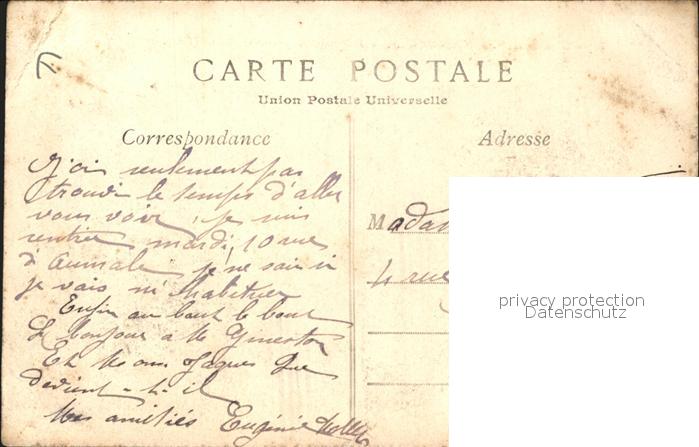 CARTE POSTALE
Union Postale Universelle
Correspondance
Adresse
J'ai seulement pas
trouvé le temps d'aller
vous voir, je suis
rentrée mardi, 10 rue
d'Aumale, je ne sais si
je vais m'habituer
Enfin au bout le bout
Le bonjour a Me
Et Jaques Que
devient-t-il
Mes amitiés Eugénie
Madam
4 rue
privacy protection
Datenschutz